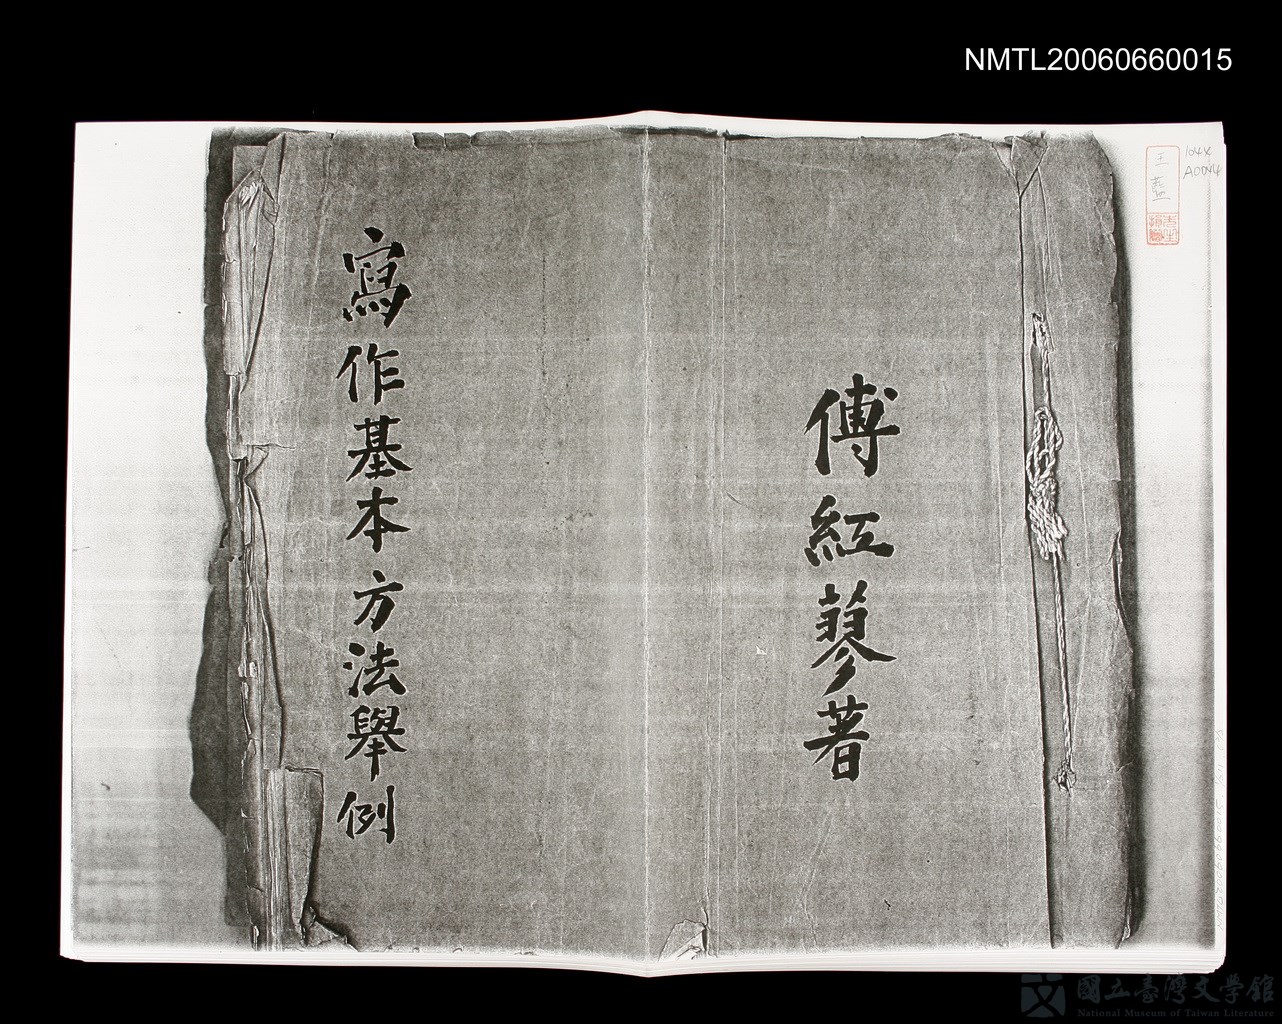 NMTL20060660015
104X
A0044
王藍
先生
捐贈
傅紅蓼著
寫作基本方法舉例
國立臺灣文學館
National Museum of Taiwan Literature